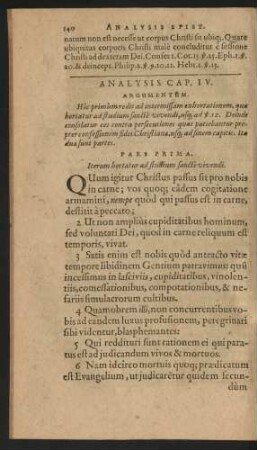 140 ANALYSIS EPIST.
natum non est necesse ut corpus Christi sit ubiq;. Quare
ubiquitas corporis Christi male concluditur è sessione
Christi ad dexteram Dei. Confer 1. Cor. 15. ℣. 25. Eph. 1. ℣.
20. & deinceps. Philip. 2. ℣. 9. 10. 11. Hebr. 1. ℣. 13.
ANALYSIS CAP. IV.
ARGUMENTUM.
Hic primùm redit ad intermissam exhortationem, qua
hortatur ad studium sanctè vivendi, usq; ad ℣. 12. Deinde
consolatur eos contra persecutiones quas patiebantur pro-
pter confessionem fidei Christianæ, usq; ad finem capitis. Ita
duæ sunt partes.
PARS PRIMA.
Iterum hortatur ad studium sanctè vivendi.
QUum igitur Christus passus sit pro nobis
in carne; vos quoq; eâdem cogitatione
armamini, nempe quòd qui passus est in carne,
destitit à peccato;
2 Ut non ampliùs cupiditatibus hominum,
sed voluntati Dei, quod in carne reliquum est
temporis, vivat.
3 Satis enim est nobis quòd anteacto vitæ
tempore libidinem Gentium patravimus; quũ
incessimus in lasciviis, cupiditatibus, vinolen-
tiis, comessationibus, compotationibus, & ne-
fariis simulacrorum cultibus.
4 Quamobrem illi, non concurrentibus vo-
bis ad eandem luxus profusionem, peregrinari
sibi videntur, blasphemantes:
5 Qui reddituri sunt rationem ei qui para-
tus est ad judicandum vivos & mortuos.
6 Nam idcirco mortuis quoq; prædicatum
est Evangelium, ut judicarẽtur quidem secun-
dùm